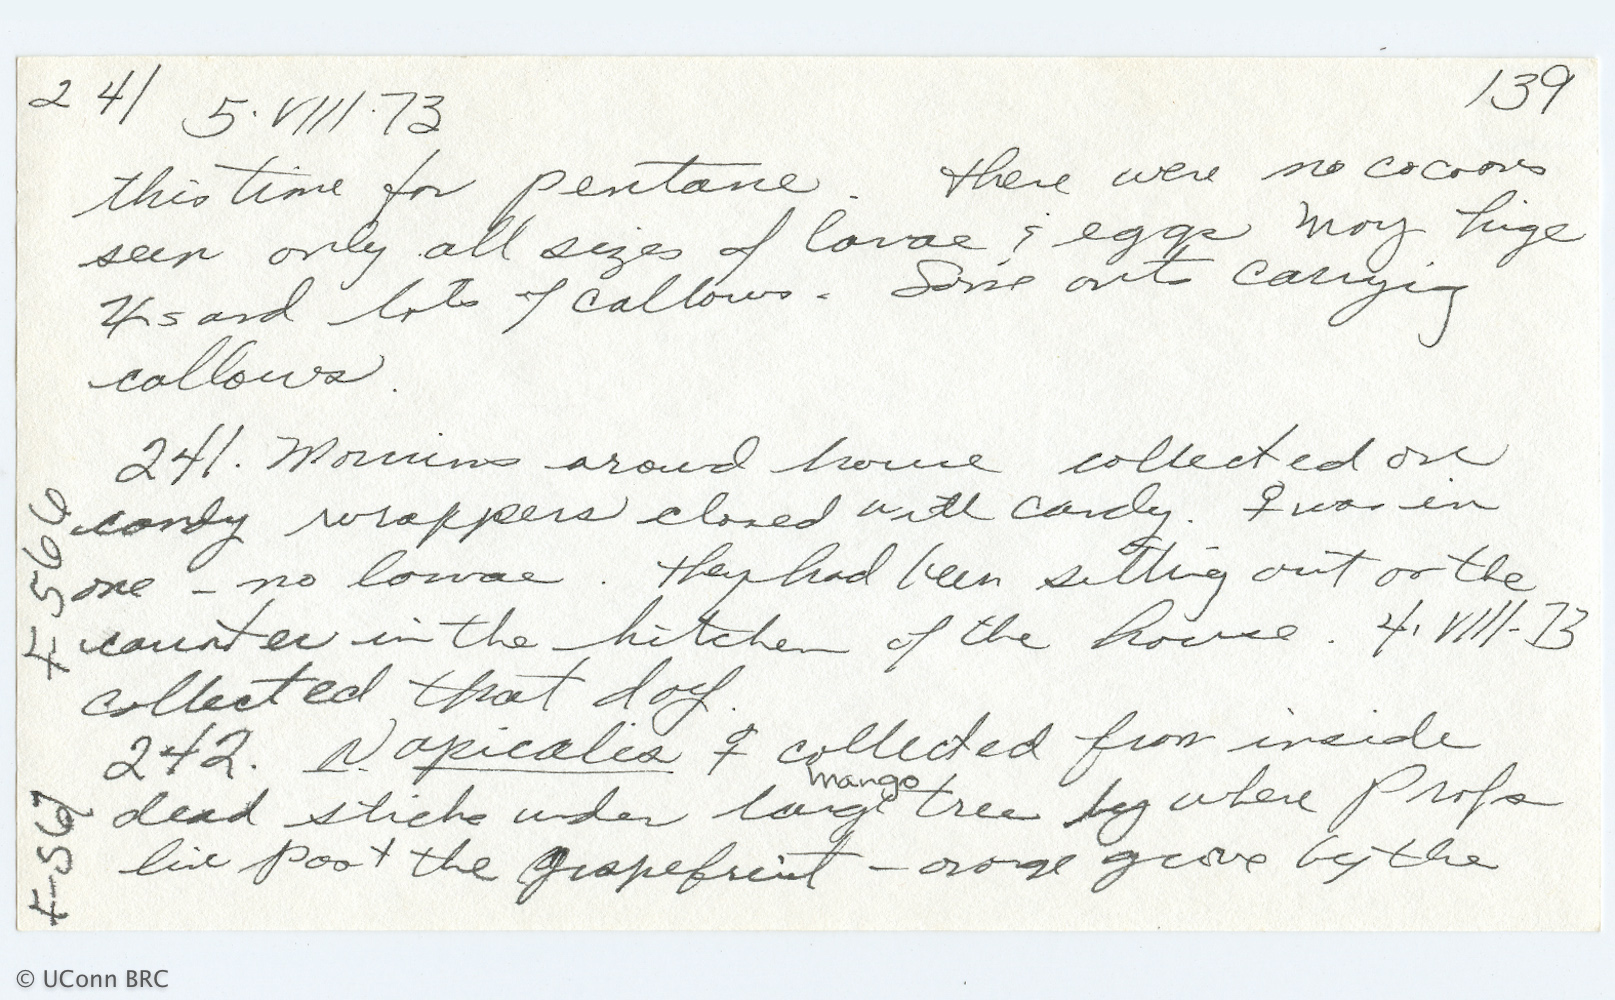 241 5.VIII.73 139
this time for pentane. There were no cocoons
seen only all sizes of larvae & eggs Many huge
♀s and lots of callows. Some ants carrying
callows.
241. around house collected on
candy wrappers closed with candy. ♀ was in
one - no larvae. They had been sitting out on the
counter in the kitchen of the house. 4.VIII-73
collected that day.
242. N apicalis ♀ collected from inside
mango
dead sticks under large tree by where Profs
live past the grapefruit - orange grove by the
F-566
F-567
© UConn BRC